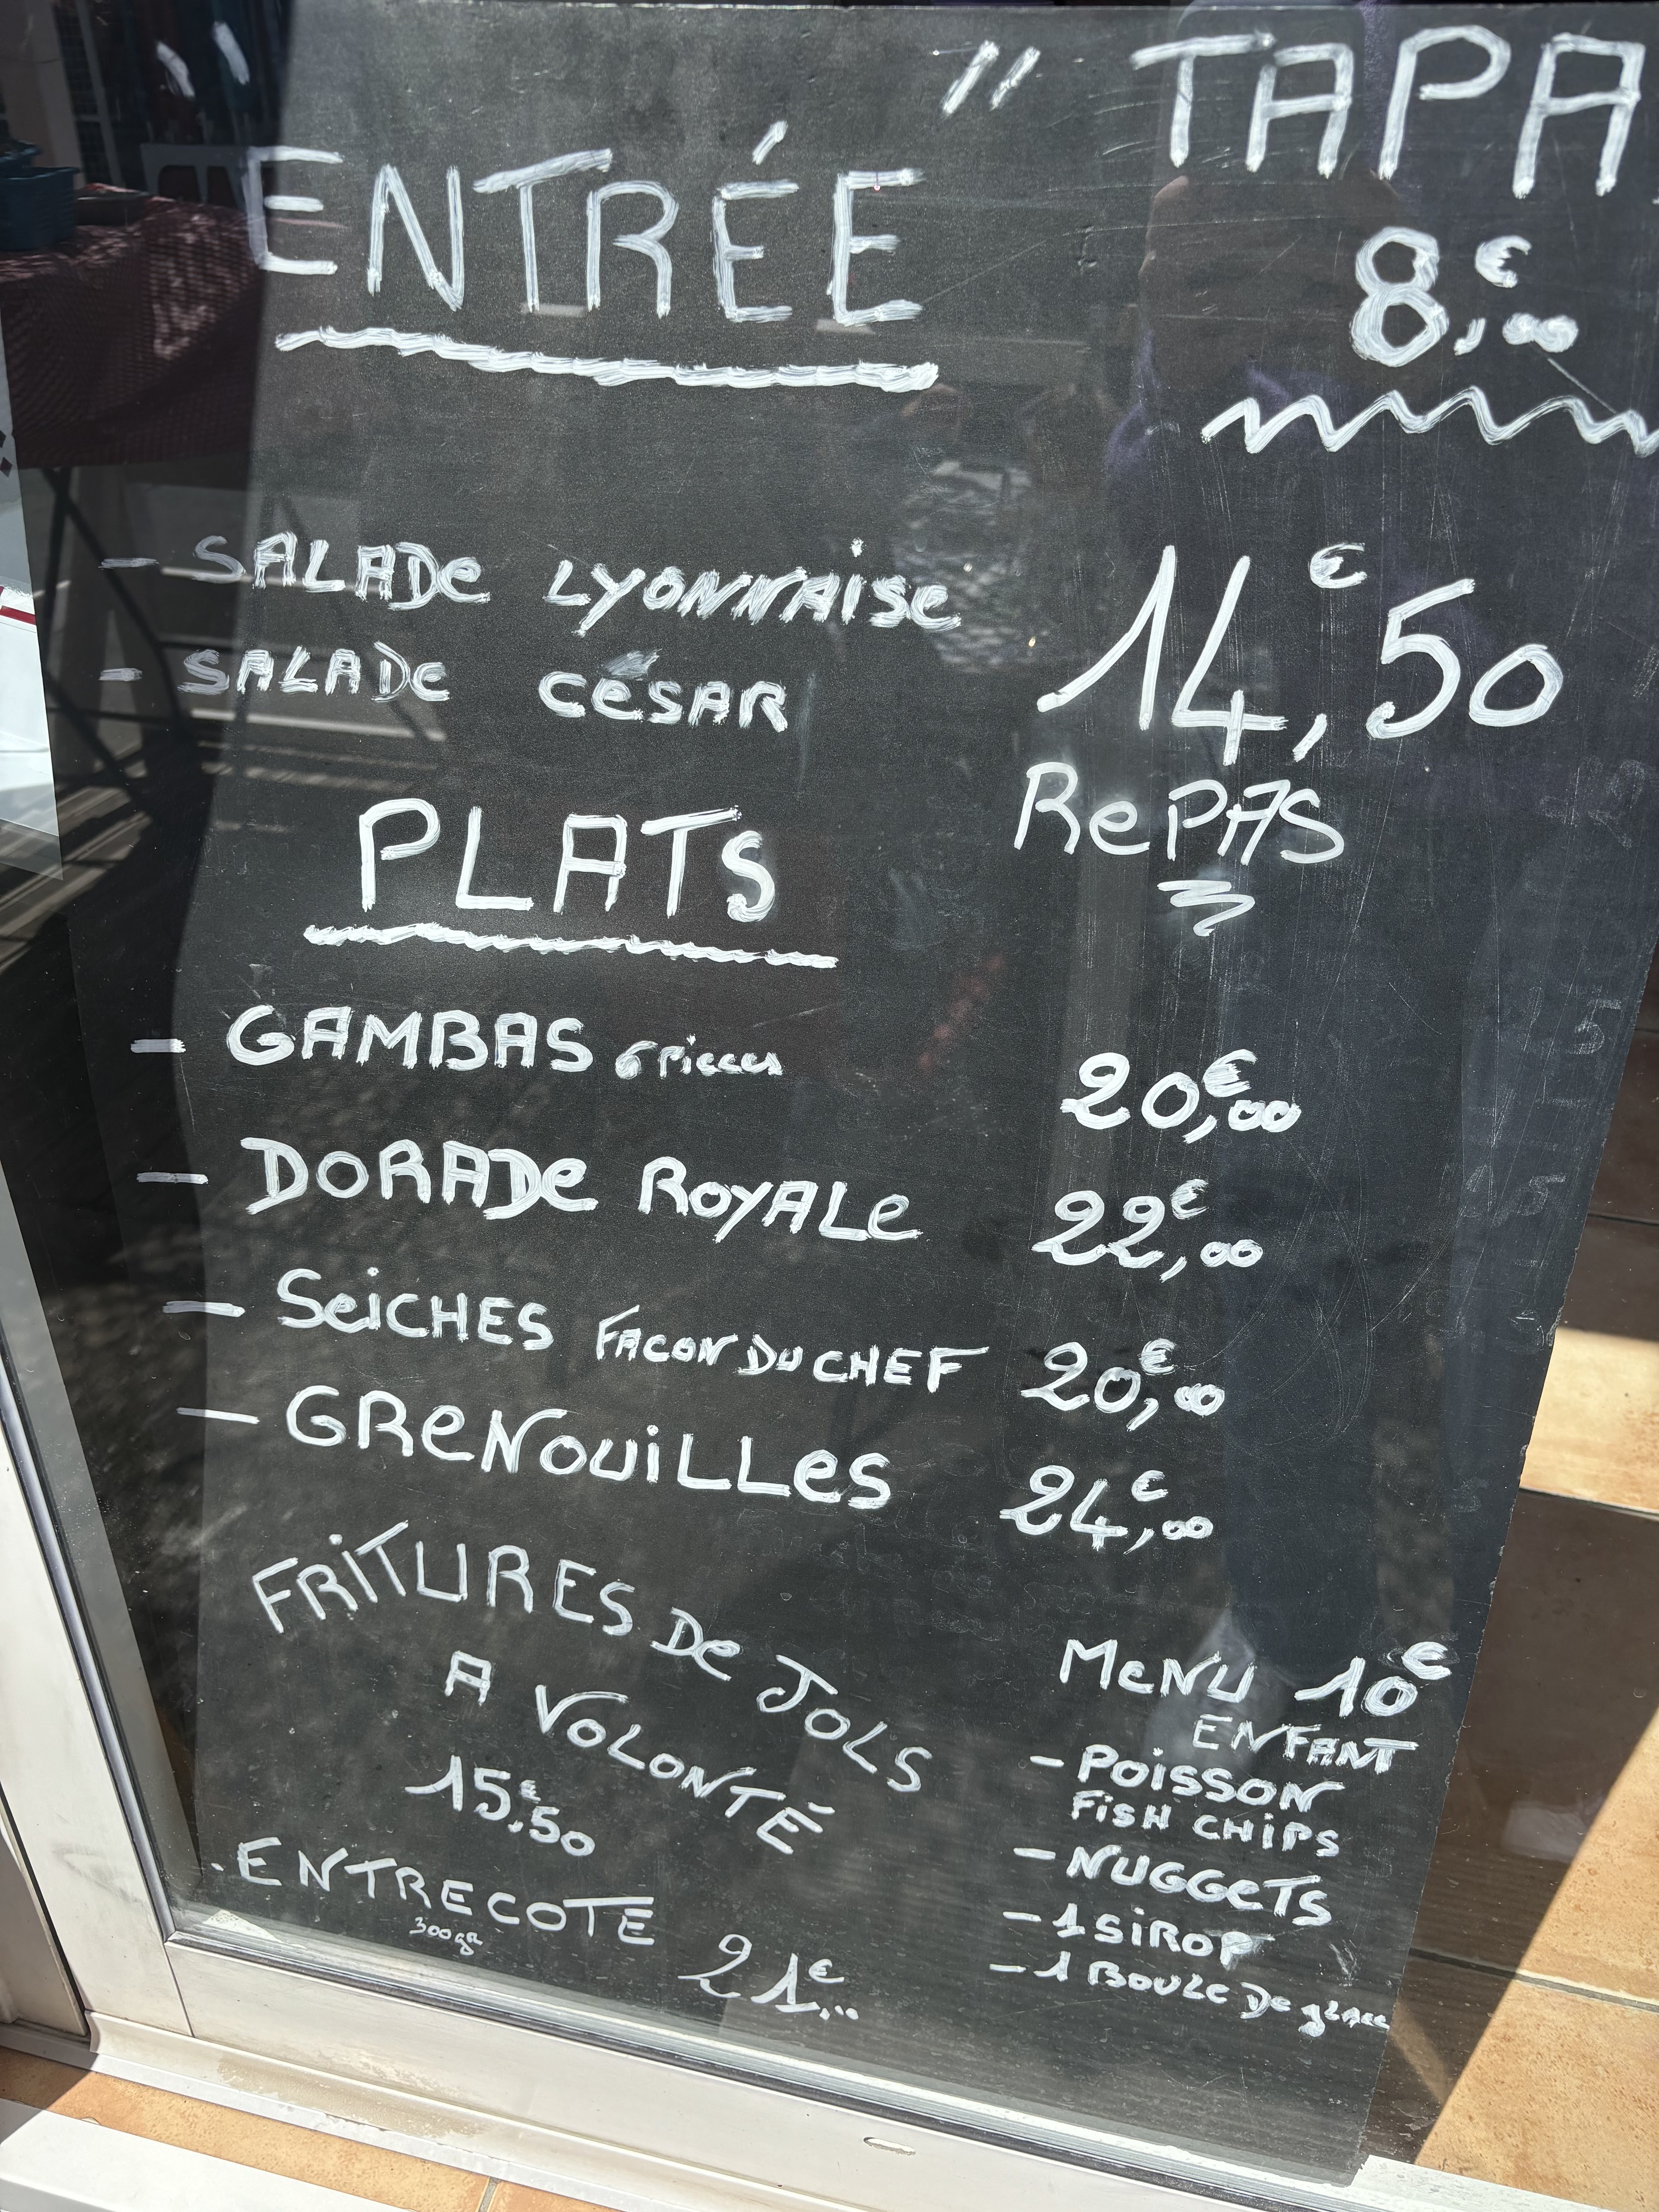 " TAPA
ENTRÉE
8,00 €
- SALADe LYONNAiSe
- SALADe CéSAR
14,50 €
RePAS
PLATS
- GAMBAS 6 Pieces 20,00 €
- DORADe ROYALe 22,00 €
- SeiCHES FACON DU CHEF 20,00 €
- GReNOUiLLeS 24,00 €
FRiTURES De JOLS
A VOLONTÉ
15,50 €
. ENTRECOTE
300gr
21,.. €
MeNU 10 €
ENFANT
- POiSSON
FiSH CHiPS
- NUGGeTS
- 1 SiROP
- 1 BOULe De gLAce